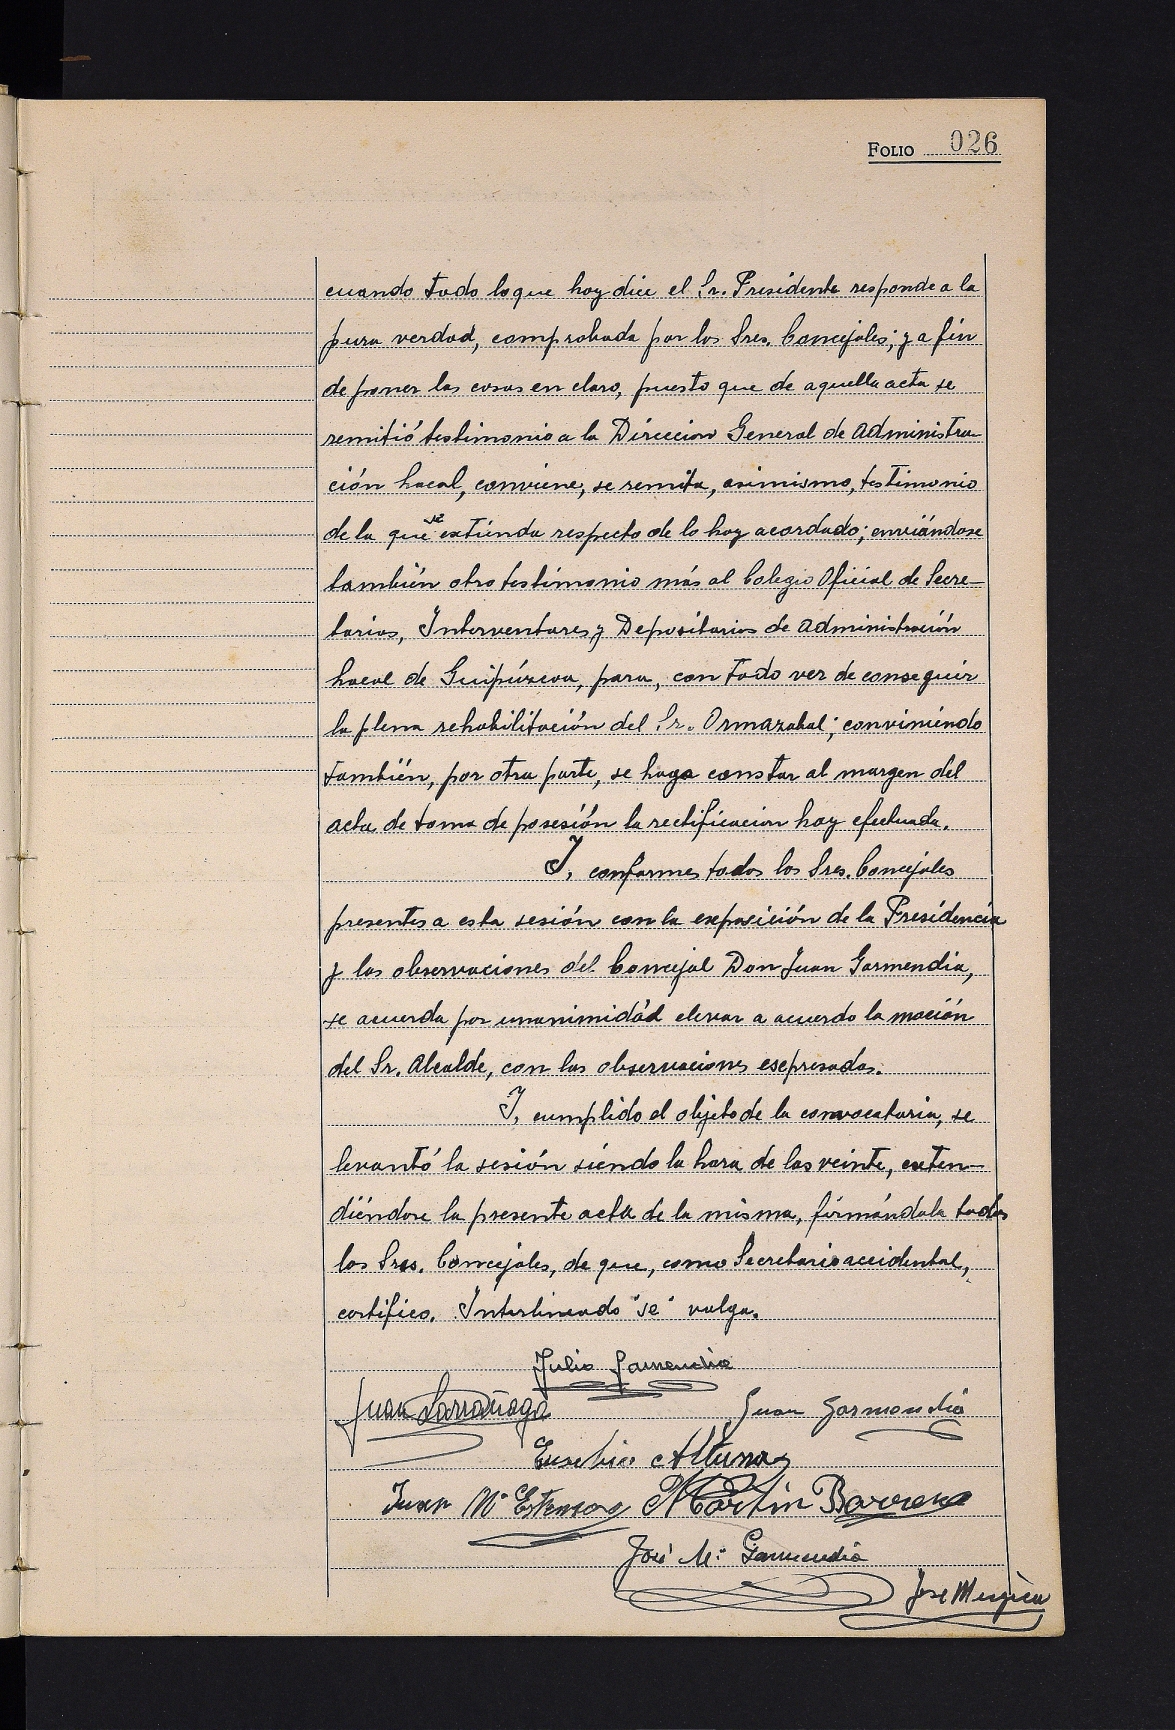 FOLIO 026
cuando todo lo que hoy dice el Sr. Presidente responde a la
pura verdad, comprobada por los Sres. Concejales; y a fin
de poner las cosas en claro, puesto que de aquella acta se
remitió testimonio a la Direccion General de Administra-
ción Local, conviene, se remita, asimismo, testimonio
de la que se extienda respecto de lo hoy acordado; enviándose
también otro testimonio más al Colegio Oficial de Secre-
tarios, Interventores y Depositarios de Administración
Local de Guipúzcoa, para, con todo ver de conseguir
la plena rehabilitación del Sr. Ormazabal; conviniendo
también, por otra parte, se haga constar al margen del
acta de toma de posesión la rectificacion hoy efectuada.
Y, conformes todos los Sres. Concejales
presentes a esta sesión con la exposición de la Presidencia
y las observaciones del Concejal Don Juan Garmendia,
se acuerda por unanimidad elevar a acuerdo la moción
del Sr. Alcalde, con las observaciones expresadas.
Y, cumplido el objeto de la convocatoria, se
levantó la sesión siendo la hora de las veinte, exten-
diéndose la presente acta de la misma, firmándola todos
los Sres. Concejales, de que, como Secretario accidental,
certifico. Interlineado "se" valga.
Julio Garmendia
Juan Larrañaga Juan Garmendia
Eusebio Altuna
Juan Mª Martin Barrena
José Mª Garmendia
Jose Mugica